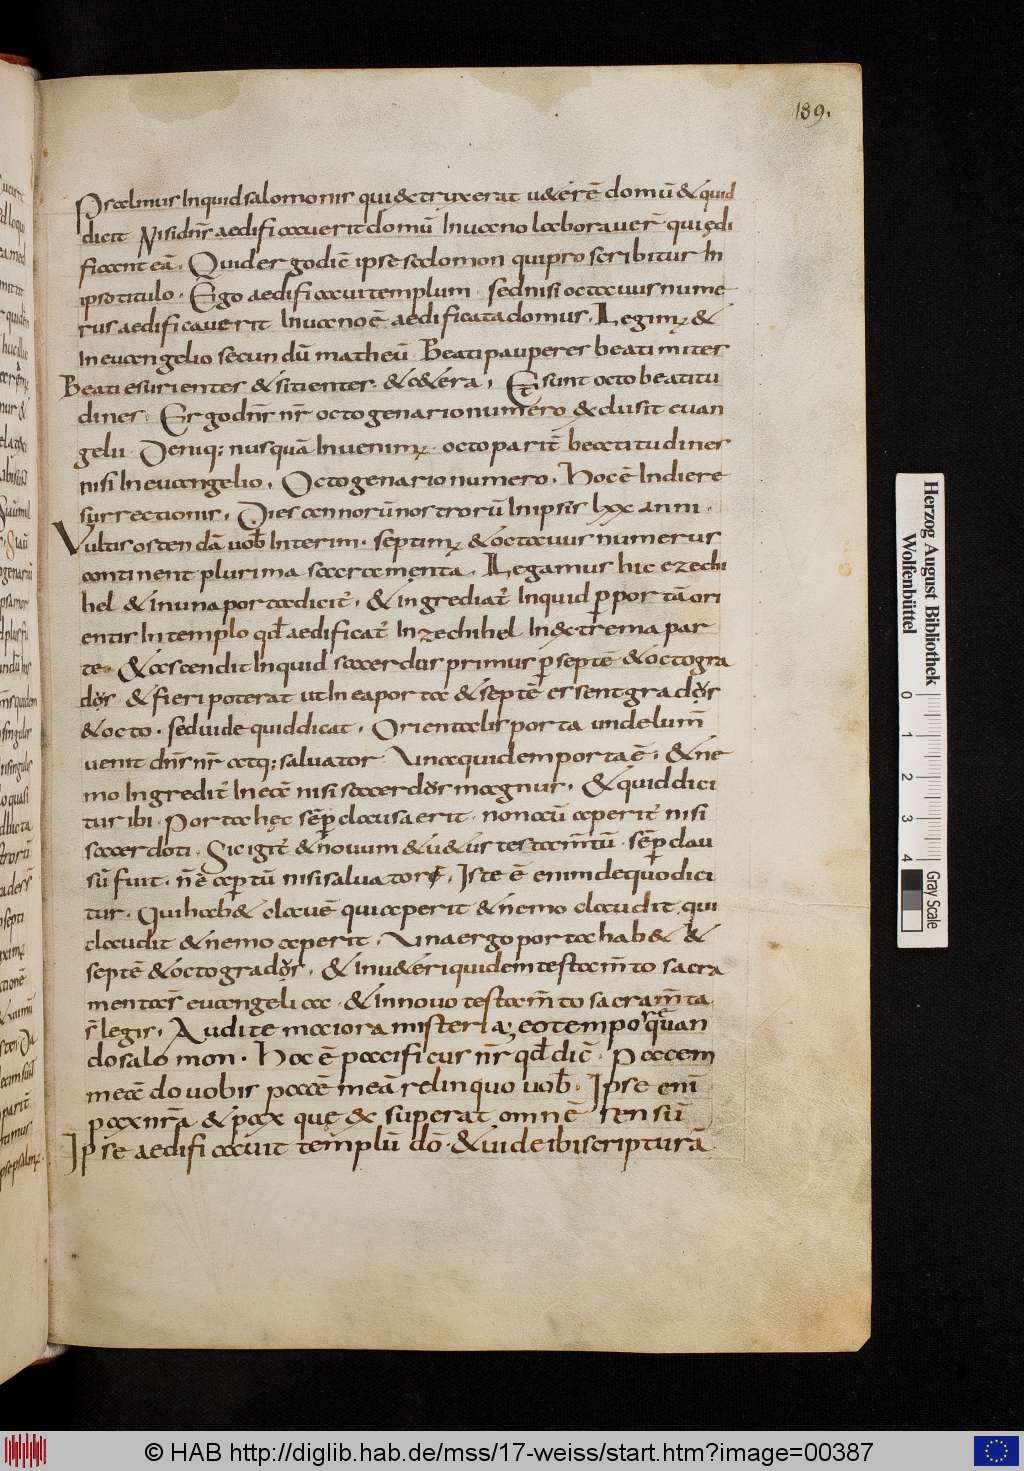 189.
Psalmus Inquid salomonis qui &truxerat u&erē domū & quid
dicit Nisi dn̄s aedificauerit domū Inuano laborauer̄ qui ędi
ficant eā. Quid ergo dic̄ ipse salomon qui pro scribitur In
ipso titulo. Ego aedificaui templum sed nisi octauus nume
rus aedificauerit Inuano ē aedificata domus. Legim; &
In euangelio secundū matheū Beati pauperes beati mites
Beati esurientes & sitientes & c&era. Et sunt octo beatitu
dines. Ergo dn̄s nr̄ octogenario numero &clusit euan
gelii Deniq; nusquā Inuenim; octo parit̄ beatitudines
nisi In euangelio. Octogenario numero. Hoc ē In die re
surrectionis. Dies annorū nostrorū In ipsis lxx anni.
Vultis ostendā uob̄ Interim. septim; & octauus numerus
continent plurima sacramęnta. Legamus hic ezechi
hel & in una porta dicit̄. & ingrediat̄ Inquid p portā ori
entis In templo qd̄ aedificat̄ In zechihel In &trema par
te & ascendit Inquid sacerdus primus p septē & octo gra
dos & fieri poterat ut In ea porta & septē essent grados
& octo. sed uide quid dicat. Orientalis porta unde lum̄
uenit dn̄s nr̄ atq; saluator Una equidem porta ē. & ne
mo Ingredit̄ In eā nisi sacerdos magnus. & quid dici
tur ibi. Porta hęc sēp clausa erit. non eū aperit̄ nisi
sacerdoti. Sic igit̄ & nouum & u&us testam̄tū. sēp clau
sū fuit. n̄ ē aptū nisi saluatore. Iste ē enim de quo dici
tur. Qui hab& clauē qui aperit & nemo claudit qui
claudit & nemo aperit. Una ergo porta hab& &
septē & octo grados. & in u&eri quidem testam̄to sacra
mentoes euangeli ac. & in nouo testam̄to sacram̄ta
s̄ legis. Audite maiora misteria; eo tempore quan
do salomon. Hoc ē pacificus nr̄ qd̄ dic̄. Pacem
meā do uobis pacē meā relinquo uob̄. Ipse eni
pax nr̄a & pax quę & superat omnē sensū
Ipse aedificauit templū dō. & uide ibi scripturā
Herzog August Bibliothek
Wolfenbüttel
0 1 2 3 4
Gray Scale
© HAB http://diglib.hab.de/mss/17-weiss/start.htm?image=00387